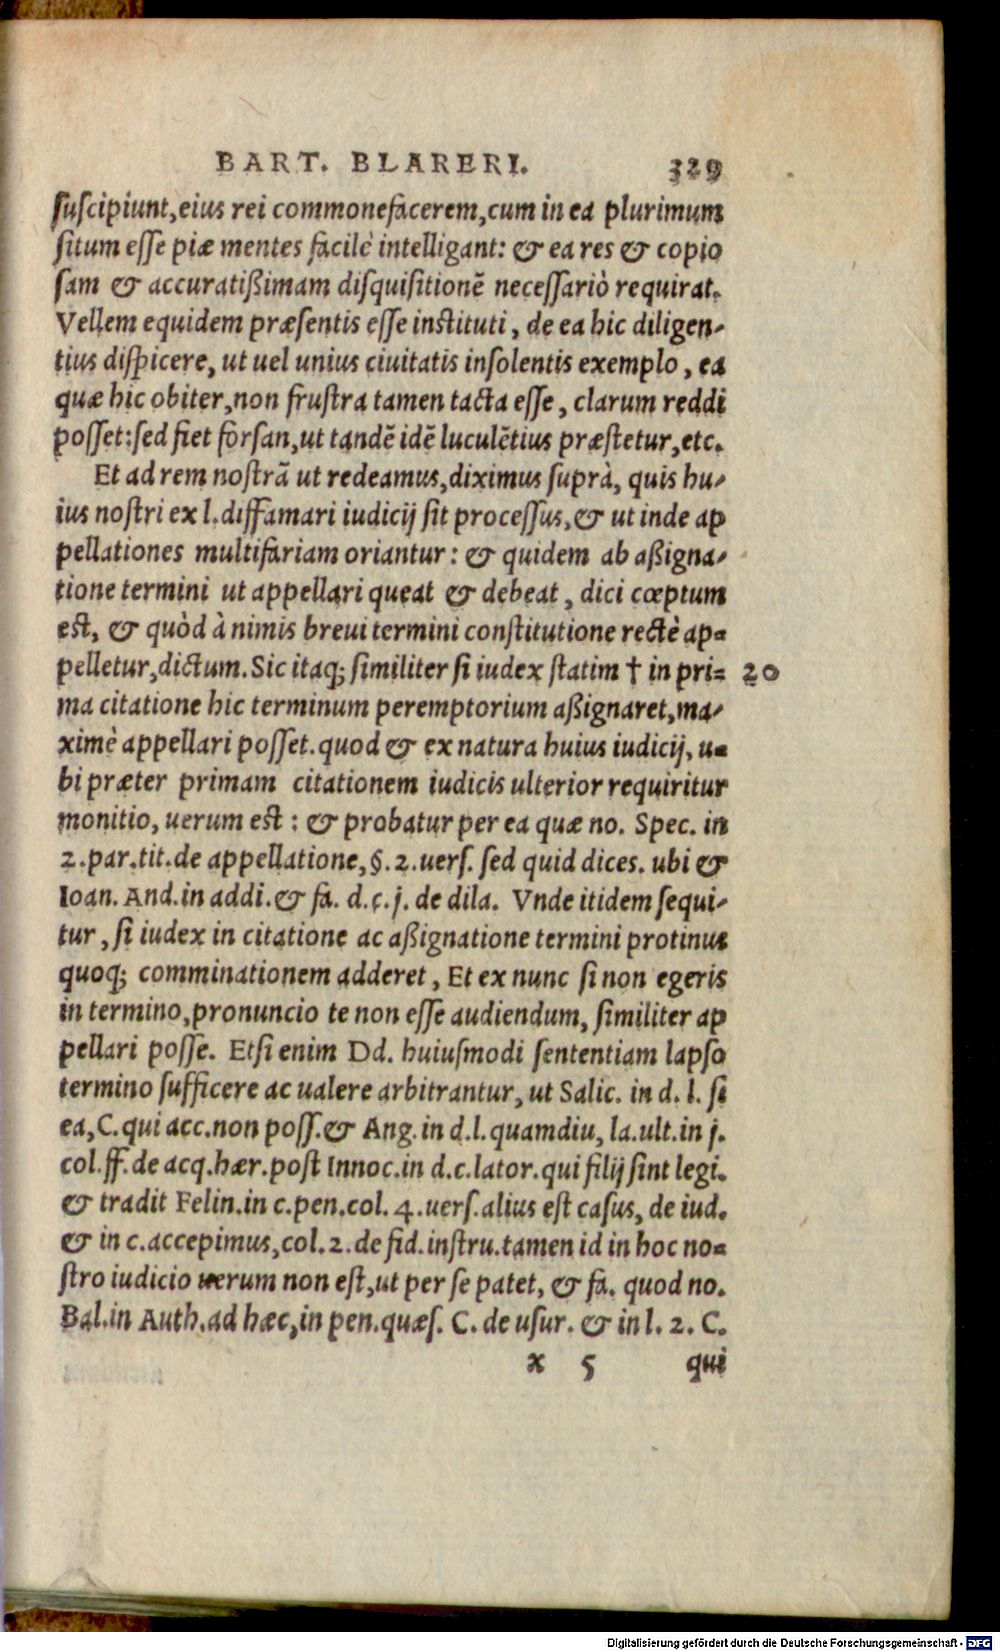 BART. BLARERI. 329
ſuſcipiunt, eius rei commonefacerem, cum in ea plurimum
ſitum eſſe piæ mentes facilè intelligant: & ea res & copio
ſam & accuratißimam diſquiſitionē neceſſariò requirat.
Vellem equidem præſentis eſſe inſtituti, de ea hic diligen-
tius diſpicere, ut uel unius ciuitatis inſolentis exemplo, ea
quæ hic obiter, non fruſtra tamen tacta eſſe, clarum reddi
poſſet: ſed fiet forſan, ut tandē idē luculētius præſtetur, etc.
Et ad rem noſtrā ut redeamus, diximus ſuprà, quis hu-
ius noſtri ex l. diffamari iudicij ſit proceſſus, & ut inde ap
pellationes multifariam oriantur: & quidem ab aßigna-
tione termini ut appellari queat & debeat, dici cœptum
eſt, & quòd à nimis breui termini conſtitutione rectè ap-
pelletur, dictum. Sic itaq; ſimiliter ſi iudex ſtatim † in pri- 20
ma citatione hic terminum peremptorium aßignaret, ma-
ximè appellari poſſet. quod & ex natura huius iudicij, u-
bi præter primam citationem iudicis ulterior requiritur
monitio, uerum eſt: & probatur per ea quæ no. Spec. in
2. par. tit. de appellatione, §. 2. uerſ. ſed quid dices. ubi &
Ioan. And. in addi. & fa. d. c. j. de dila. Vnde itidem ſequi-
tur, ſi iudex in citatione ac aßignatione termini protinus
quoq; comminationem adderet, Et ex nunc ſi non egeris
in termino, pronuncio te non eſſe audiendum, ſimiliter ap
pellari poſſe. Etſi enim Dd. huiuſmodi ſententiam lapſo
termino ſufficere ac ualere arbitrantur, ut Salic. in d. l. ſi
ea, C. qui acc. non poſſ. & Ang. in d. l. quamdiu, la. ult. in j.
col. ff. de acq. hær. poſt Innoc. in d. c. lator. qui filij ſint legi.
& tradit Felin. in c. pen. col. 4. uerſ. alius eſt caſus, de iud.
& in c. accepimus, col. 2. de fid. inſtru. tamen id in hoc no-
ſtro iudicio uerum non eſt, ut per ſe patet, & fa. quod no.
Bal. in Auth. ad hæc, in pen. quæſ. C. de uſur. & in l. 2. C.
x 5 qui
Digitalisierung gefördert durch die Deutsche Forschungsgemeinschaft - DFG